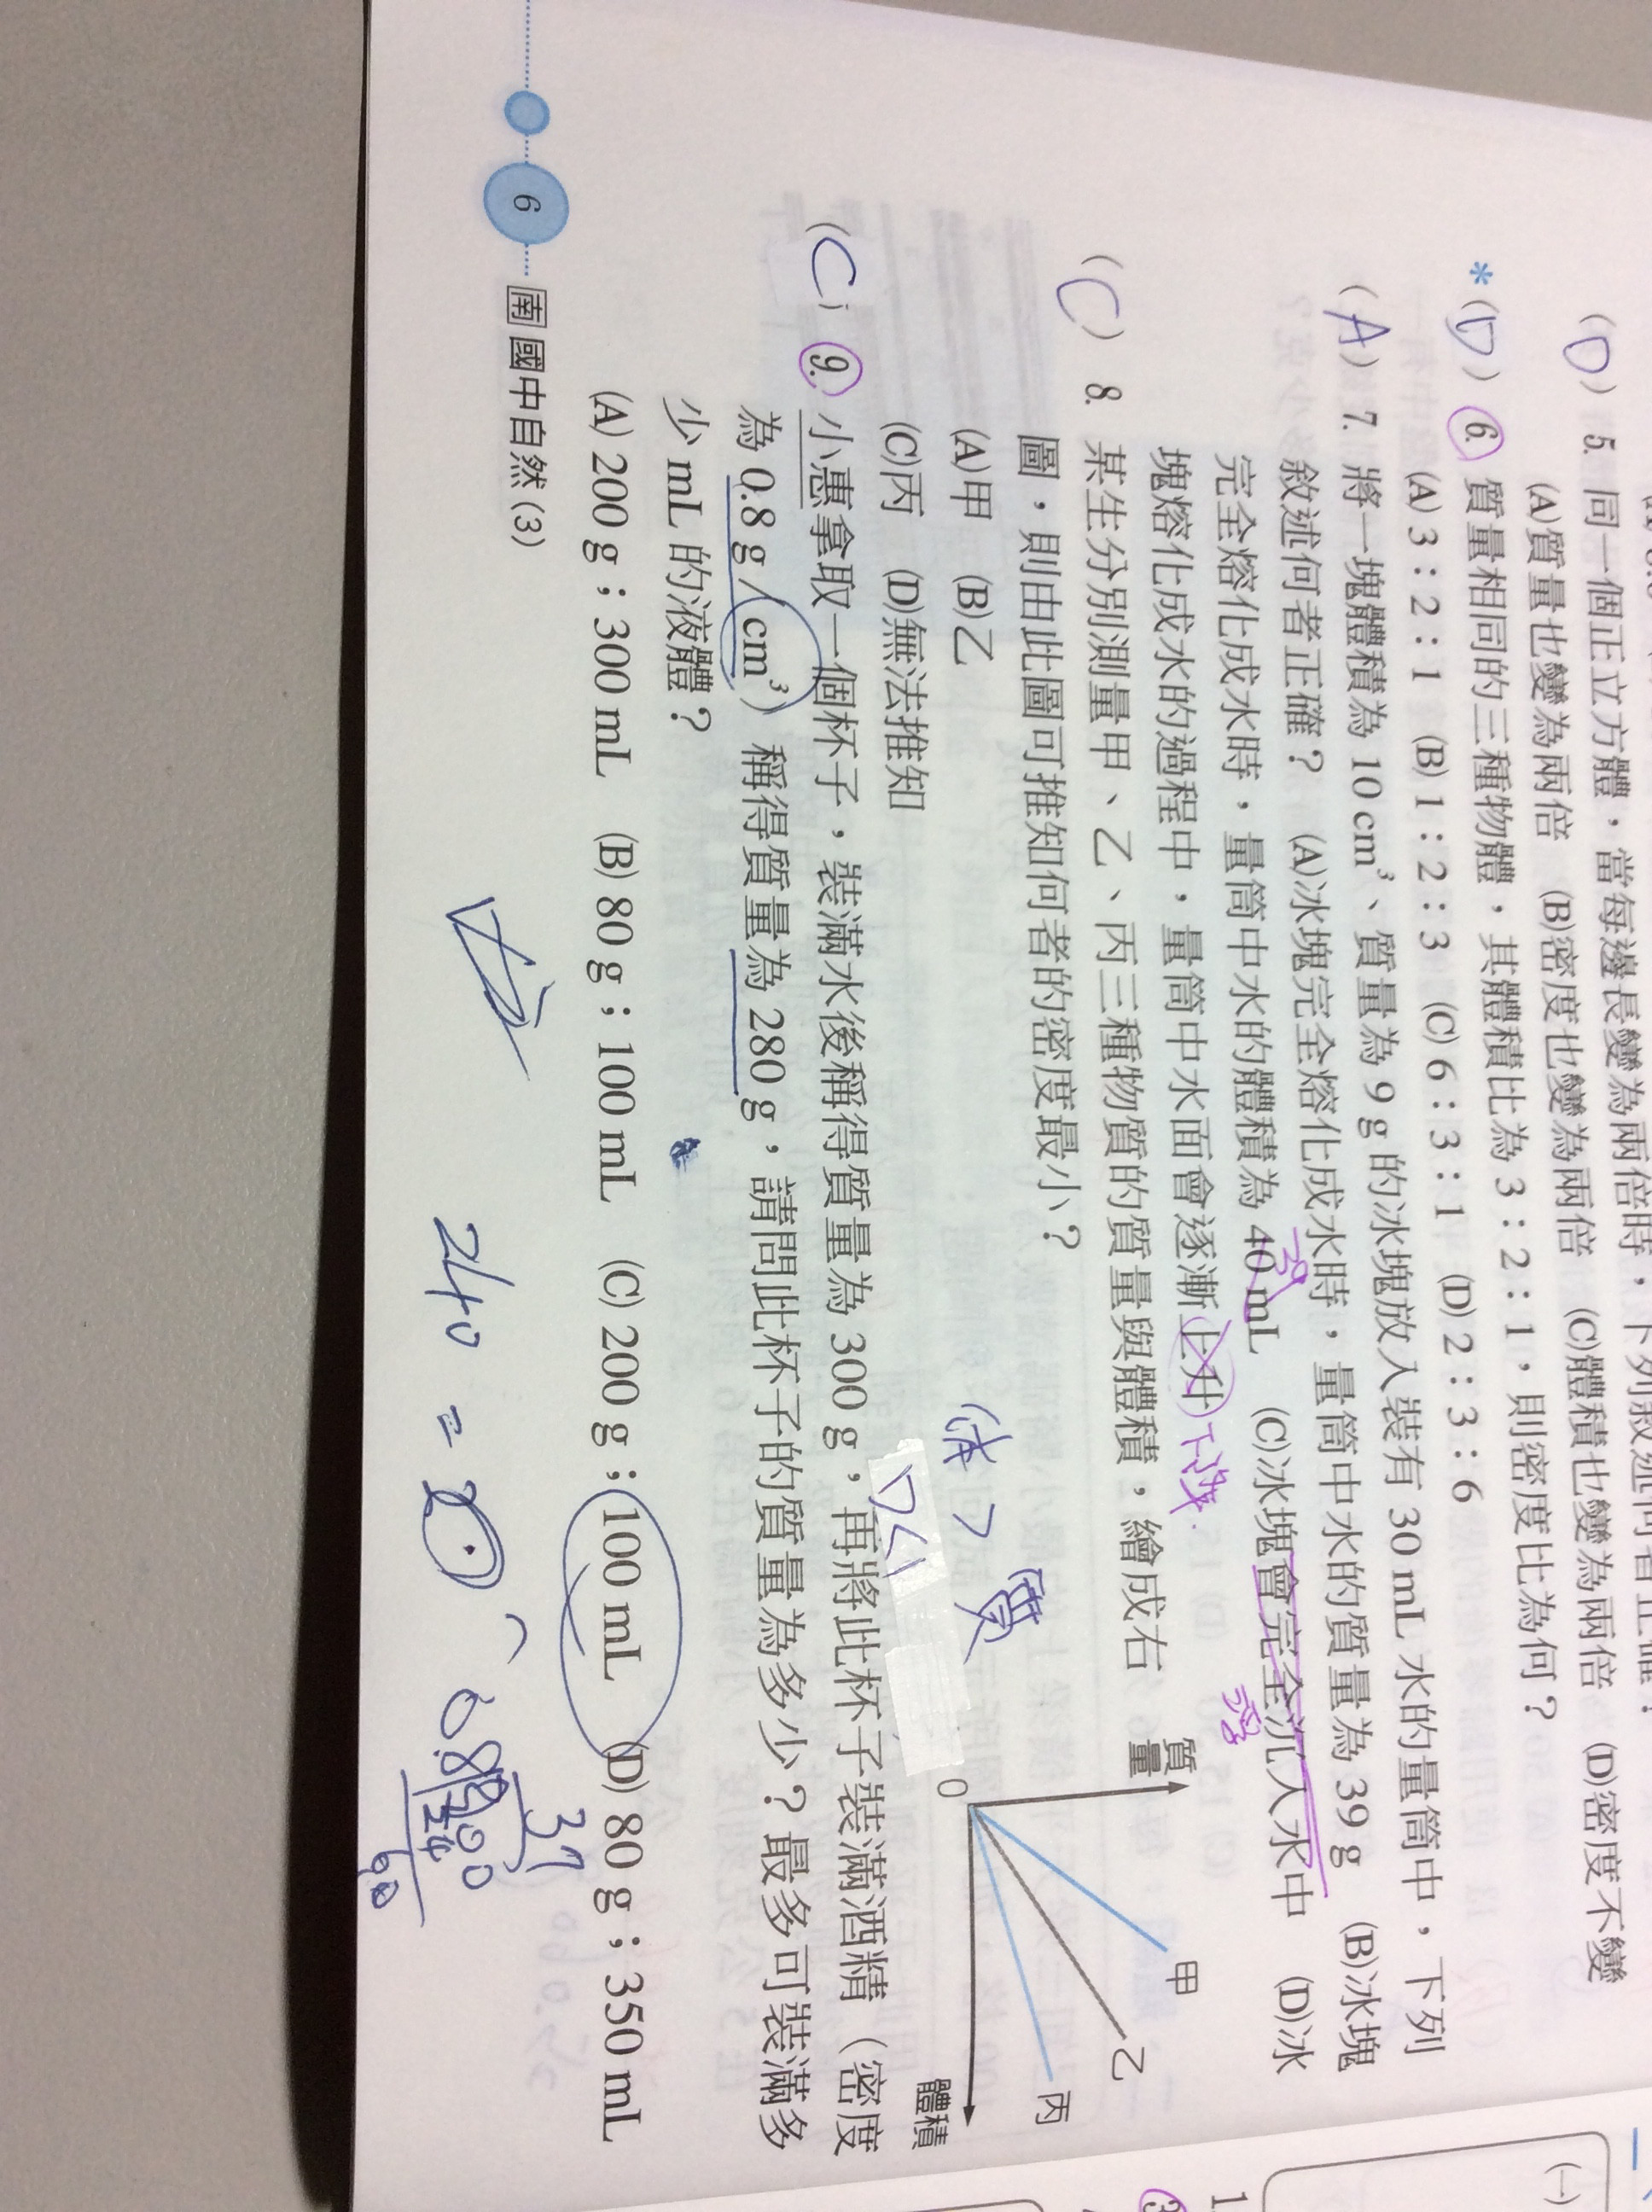 (D) 5. 同一個正立方體，當每邊長變為兩倍時，下列敘述何者正確？
(A)質量也變為兩倍 (B)密度也變為兩倍 (C)體積也變為兩倍 (D)密度不變
*(D) 6. 質量相同的三種物體，其體積比為 3：2：1，則密度比為何？
(A) 3：2：1 (B) 1：2：3 (C) 6：3：1 (D) 2：3：6
(A) 7. 將一塊體積為 10 cm³、質量為 9 g 的冰塊放入裝有 30 mL 水的量筒中，下列
敘述何者正確？ (A)冰塊完全熔化成水時，量筒中水的質量為 39 g (B)冰塊
完全熔化成水時，量筒中水的體積為 40 mL (C)冰塊會完全沉入水中 (D)冰
39
塊熔化成水的過程中，量筒中水面會逐漸上升
(C) 8. 某生分別測量甲、乙、丙三種物質的質量與體積，繪成右
圖，則由此圖可推知何者的密度最小？
(A)甲 (B)乙
(C)丙 (D)無法推知
體 > 質
D<1
質量
0
甲
乙
丙
體積
(C) 9. 小惠拿取一個杯子，裝滿水後稱得質量為 300 g，再將此杯子裝滿酒精（密度
為 0.8 g／cm³）稱得質量為 280 g，請問此杯子的質量為多少？最多可裝滿多
少 mL 的液體？
(A) 200 g；300 mL (B) 80 g；100 mL (C) 200 g；100 mL (D) 80 g；350 mL
240 =
6 南 國中自然 (3)